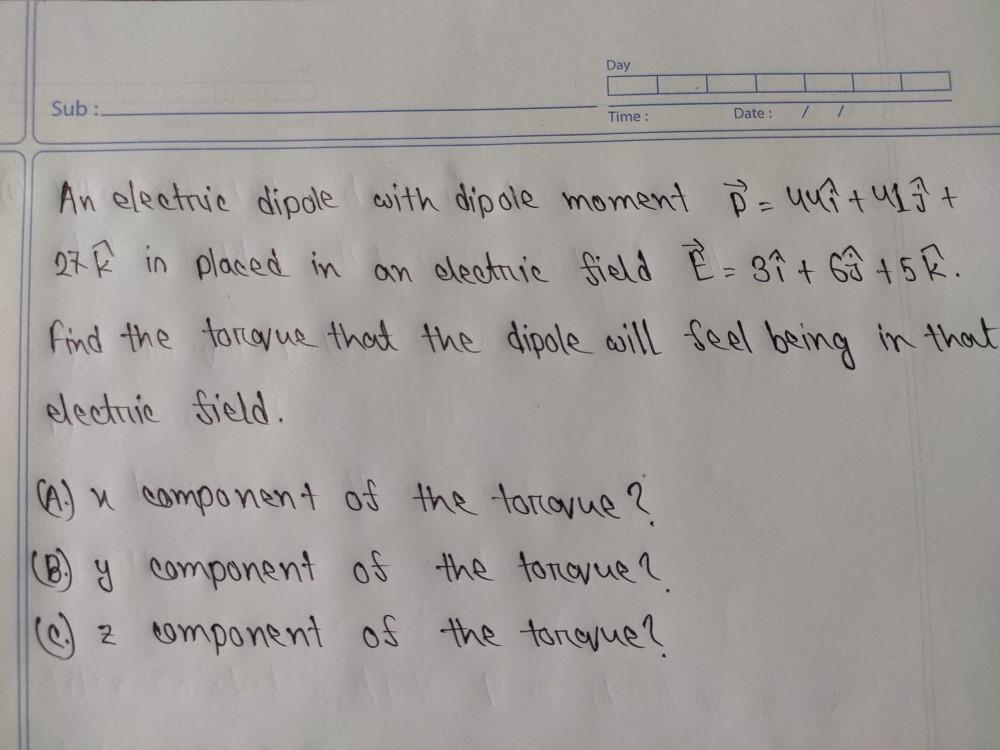 Day
Sub :
Time :
Date : / /
An electric dipole with dipole moment p⃗ = 44î + 41ĵ +
27k̂ in placed in an electric field E⃗ = 3î + 6ĵ + 5k̂.
Find the torque that the dipole will feel being in that
electric field.
(A.) x component of the torque?
(B.) y component of the torque?
(C.) z component of the torque?